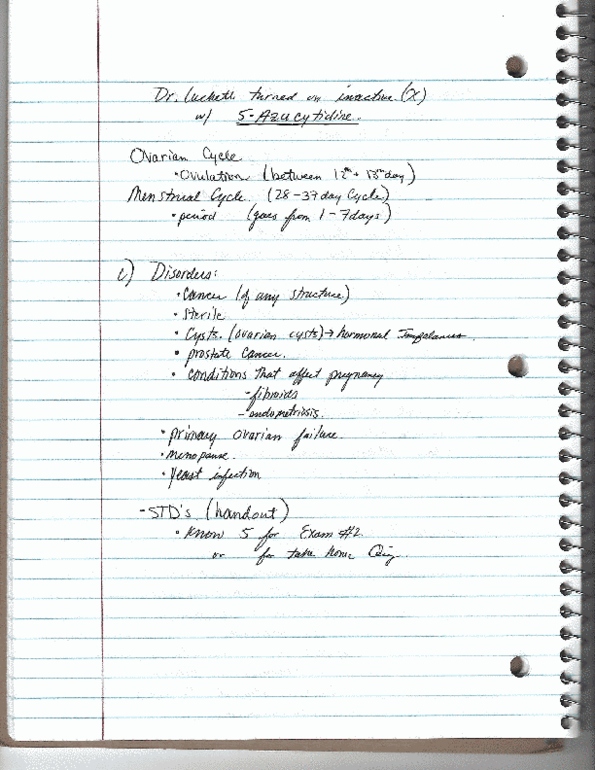 Dr. Luckett turned on inactive (X)
w/ 5-Azacytidine.
Ovarian Cycle
• Ovulation (between 12th + 13th day)
Menstrual Cycle. (28-37 day Cycle)
• period (goes from 1-7 days)
c) Disorders:
• Cancer (of any structure)
• Sterile
• Cysts. (ovarian cysts) → hormonal Imbalance.
• prostate Cancer.
• Conditions that affect pregnancy
- fibroids
- endometriosis.
• primary ovarian failure.
• menopause.
• Yeast infection
- STD's (handout)
• Know 5 for Exam #2.
or for take home Quiz.